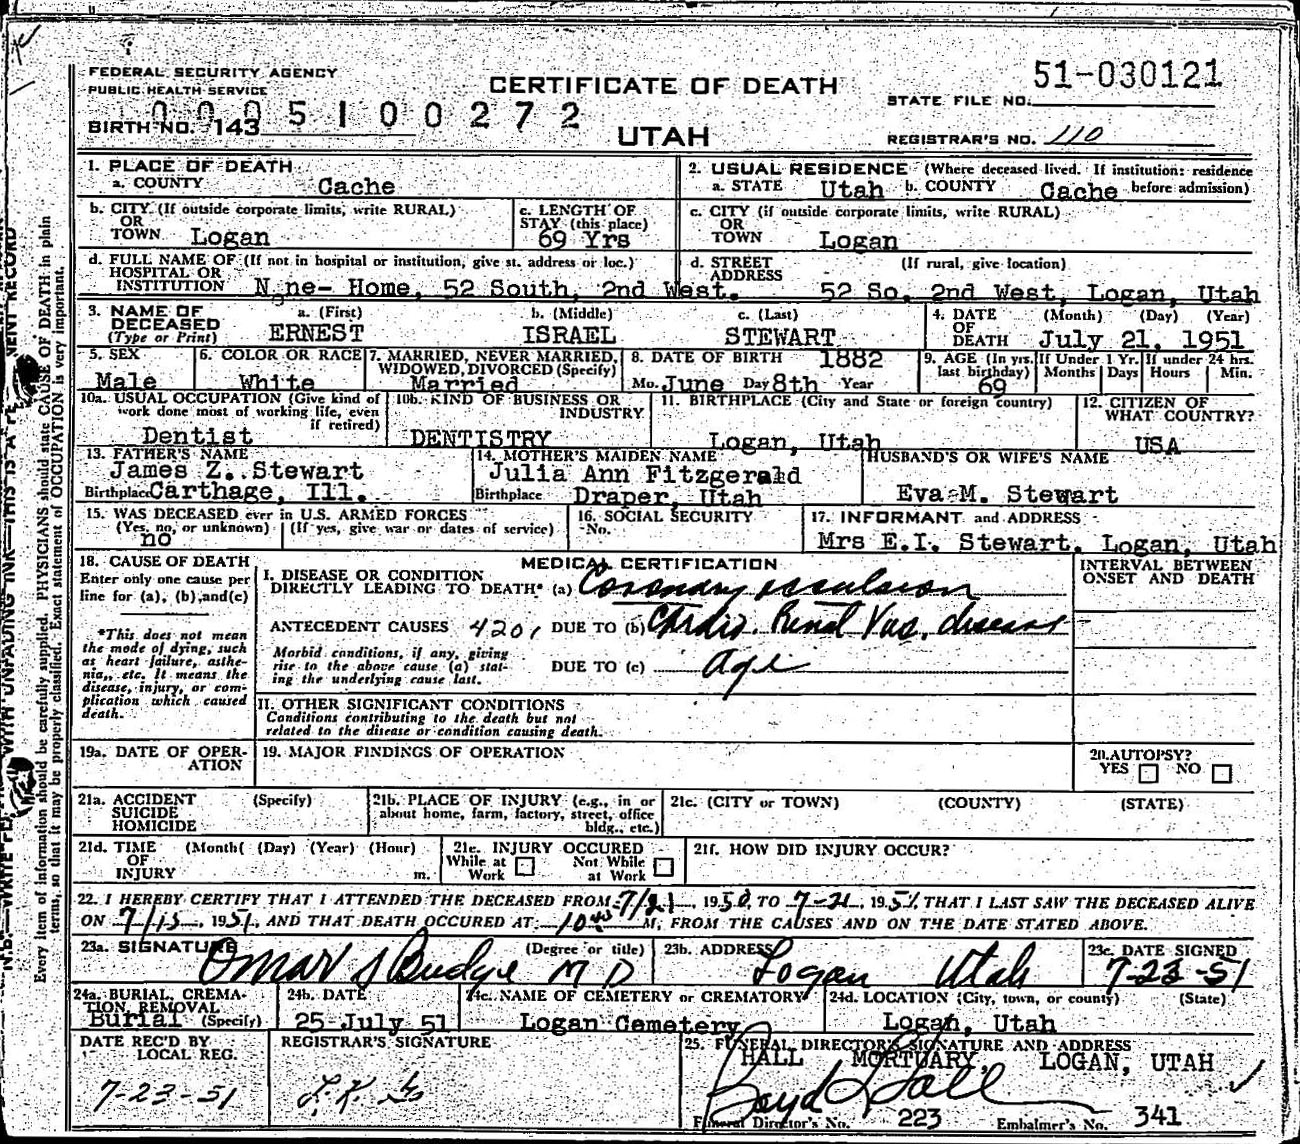 FEDERAL SECURITY AGENCY
PUBLIC HEALTH SERVICE
CERTIFICATE OF DEATH
51-030121
STATE FILE NO.
0005100272
BIRTH NO. 143
UTAH
REGISTRAR'S NO. 110
1. PLACE OF DEATH
a. COUNTY Cache
2. USUAL RESIDENCE (Where deceased lived. If institution: residence before admission)
a. STATE Utah b. COUNTY Cache
b. CITY (If outside corporate limits, write RURAL)
OR
TOWN Logan
c. LENGTH OF
STAY (this place)
69 Yrs
c. CITY (if outside corporate limits, write RURAL)
OR
TOWN Logan
d. FULL NAME OF (If not in hospital or institution, give st. address or loc.)
HOSPITAL OR
INSTITUTION None- Home, 52 South, 2nd West.
d. STREET (If rural, give location)
ADDRESS
52 So. 2nd West, Logan, Utah
3. NAME OF
DECEASED
(Type or Print)
a. (First) b. (Middle) c. (Last)
ERNEST ISRAEL STEWART
4. DATE (Month) (Day) (Year)
OF
DEATH July 21, 1951
5. SEX
Male
6. COLOR OR RACE
White
7. MARRIED, NEVER MARRIED,
WIDOWED, DIVORCED (Specify)
Married
8. DATE OF BIRTH 1882
Mo. June Day 8th Year
9. AGE (In yrs. last birthday)
69
If Under 1 Yr.
Months Days
If under 24 hrs.
Hours Min.
10a. USUAL OCCUPATION (Give kind of
work done most of working life, even
if retired)
Dentist
10b. KIND OF BUSINESS OR
INDUSTRY
DENTISTRY
11. BIRTHPLACE (City and State or foreign country)
Logan, Utah
12. CITIZEN OF
WHAT COUNTRY?
USA
13. FATHER'S NAME
James Z. Stewart
Birthplace Carthage, Ill.
14. MOTHER'S MAIDEN NAME
Julia Ann Fitzgerald
Birthplace Draper, Utah
HUSBAND'S OR WIFE'S NAME
Eva M. Stewart
15. WAS DECEASED ever in U.S. ARMED FORCES
(Yes, no, or unknown) (If yes, give war or dates of service)
no
16. SOCIAL SECURITY
No.
17. INFORMANT and ADDRESS
Mrs E.I. Stewart. Logan, Utah
18. CAUSE OF DEATH
Enter only one cause per
line for (a), (b), and (c)
*This does not mean
the mode of dying, such
as heart failure, asthe-
nia, etc. It means the
disease, injury, or com-
plication which caused
death.
MEDICAL CERTIFICATION
INTERVAL BETWEEN
ONSET AND DEATH
I. DISEASE OR CONDITION
DIRECTLY LEADING TO DEATH* (a) Coronary occulsion
ANTECEDENT CAUSES 4201 DUE TO (b) Cardio. Renal Vas. disease
Morbid conditions, if any, giving
rise to the above cause (a) stat-
ing the underlying cause last.
DUE TO (c) Age
II. OTHER SIGNIFICANT CONDITIONS
Conditions contributing to the death but not
related to the disease or condition causing death.
19a. DATE OF OPER-
ATION
19. MAJOR FINDINGS OF OPERATION
20. AUTOPSY?
YES NO
21a. ACCIDENT (Specify)
SUICIDE
HOMICIDE
21b. PLACE OF INJURY (e.g., in or
about home, farm, factory, street, office
bldg., etc.)
21c. (CITY or TOWN) (COUNTY) (STATE)
21d. TIME (Month( (Day) (Year) (Hour)
OF
INJURY m.
21e. INJURY OCCURED
While at Work Not While at Work
21f. HOW DID INJURY OCCUR?
22. I HEREBY CERTIFY THAT I ATTENDED THE DECEASED FROM 7/21, 1950, TO 7-21, 1951, THAT I LAST SAW THE DECEASED ALIVE
ON 7/15, 1951, AND THAT DEATH OCCURED AT 10 M, FROM THE CAUSES AND ON THE DATE STATED ABOVE.
23a. SIGNATURE (Degree or title)
Omar S Budge M D
23b. ADDRESS
Logan Utah
23c. DATE SIGNED
7-23-51
24a. BURIAL, CREMA-
TION, REMOVAL
Burial (Specify)
24b. DATE
25-July 51
24c. NAME OF CEMETERY or CREMATORY
Logan Cemetery
24d. LOCATION (City, town, or county) (State)
Logan, Utah
DATE REC'D BY
LOCAL REG.
7-23-51
REGISTRAR'S SIGNATURE
25. FUNERAL DIRECTOR'S SIGNATURE AND ADDRESS
HALL MORTUARY, LOGAN, UTAH
Boyd Hall
Funeral Director's No. 223 Embalmer's No. 341
Every item of information should be carefully supplied. PHYSICIANS should state CAUSE OF DEATH in plain
terms, so that it may be properly classified. Exact statement of OCCUPATION is very important.